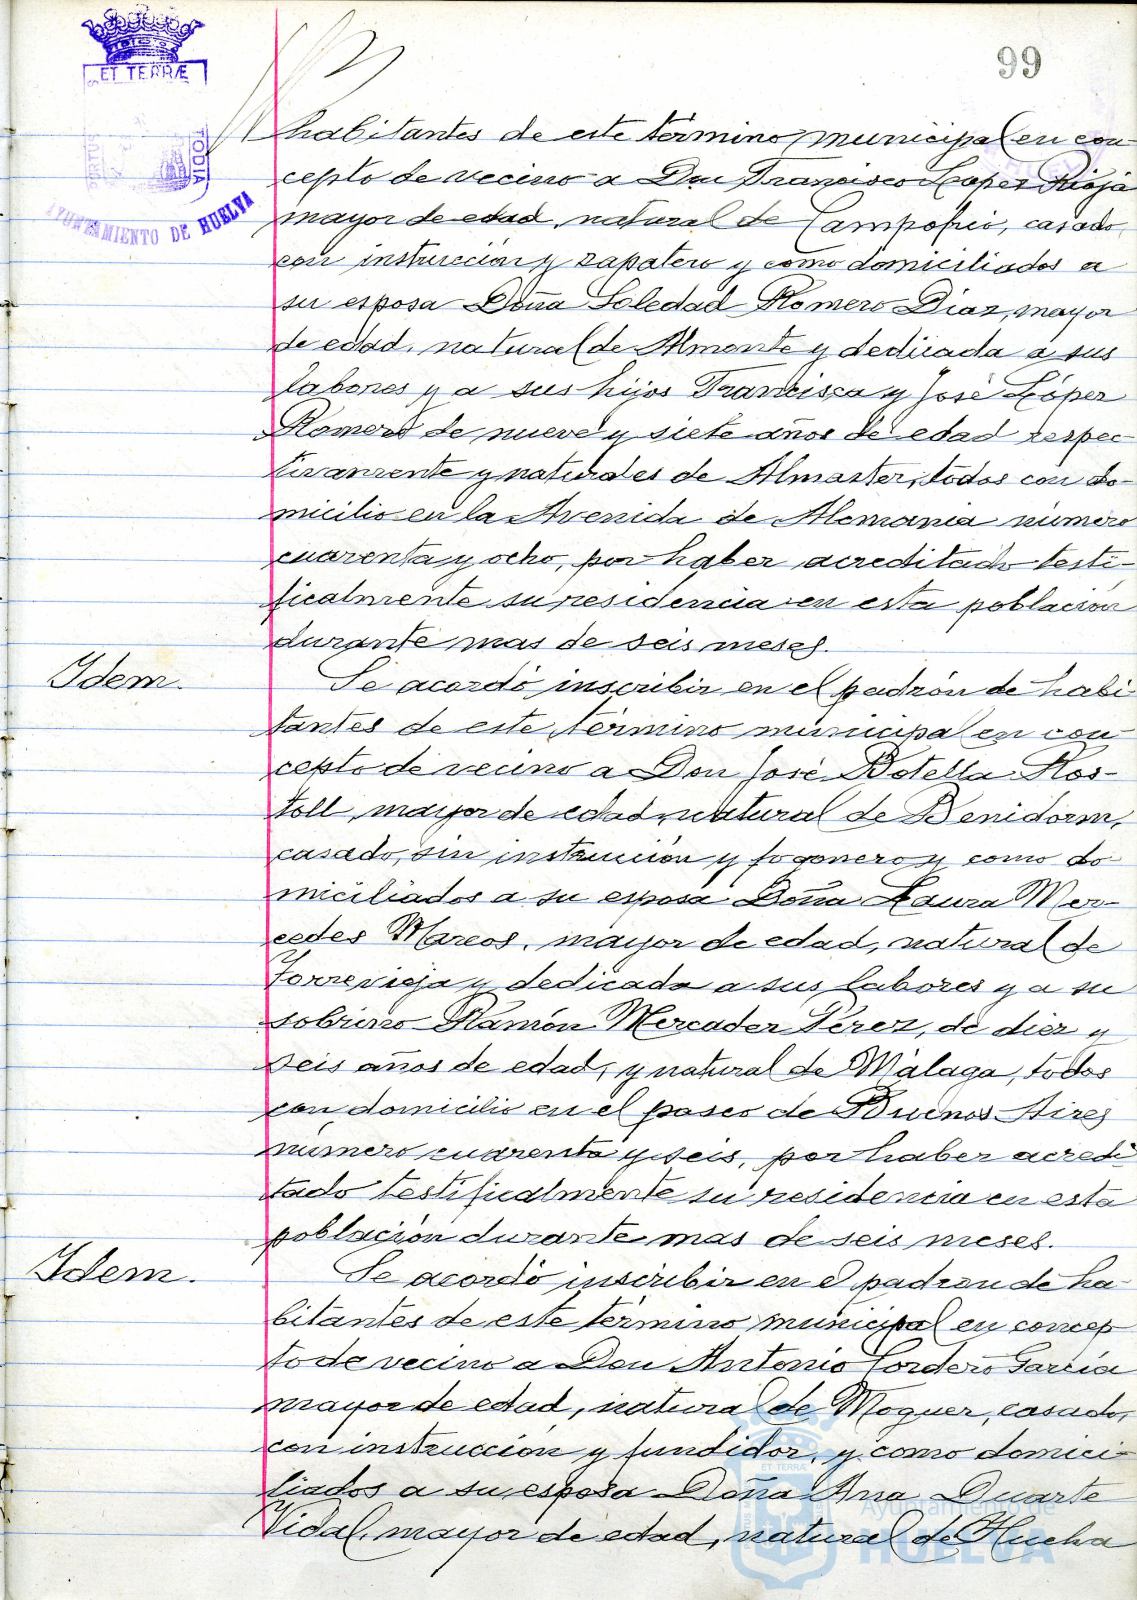 99
ET TERRÆ
PORTUS
TODIA
AYUNTAMIENTO DE HUELVA
habitantes de este término municipal en con-
cepto de vecino a Don Francisco López Rioja
mayor de edad, natural de Campofrio, casado,
con instrucción y zapatero y como domiciliados a
su esposa Doña Soledad Romero Diaz, mayor
de edad, natural de Almonte y dedicada a sus
labores y a sus hijos Francisca y José López
Romero de nueve y siete años de edad respec-
tivamente y naturales de Almaster, todos con do-
micilio en la Avenida de Alemania número
cuarenta y ocho, por haber acreditado testi-
ficalmente su residencia en esta población
durante mas de seis meses.
Idem.
Se acordó inscribir en el padrón de habi-
tantes de este término municipal en con-
cepto de vecino a Don José Botella Ros-
toll, mayor de edad, natural de Benidorm,
casado, sin instrucción y fogonero y como do-
miciliados a su esposa Doña Laura Mer-
cedes Marcos, mayor de edad, natural de
Torrevieja y dedicada a sus labores y a su
sobrino Ramón Mercader Pérez, de diez y
seis años de edad, y natural de Málaga, todos
con domicilio en el paseo de Buenos Aires
número cuarenta y seis, por haber acredi-
tado testificalmente su residencia en esta
población durante mas de seis meses.
Idem.
Se acordó inscribir en el padron de ha-
bitantes de este término municipal en concep
to de vecino a Don Antonio Cordero García
mayor de edad, natural de Moguer, casado,
con instrucción y fundidor, y como domici-
liados a su esposa Doña Ana Duarte
Vidal, mayor de edad, natural de Huelva
ET TERRÆ
Ayuntamiento de
HUELVA